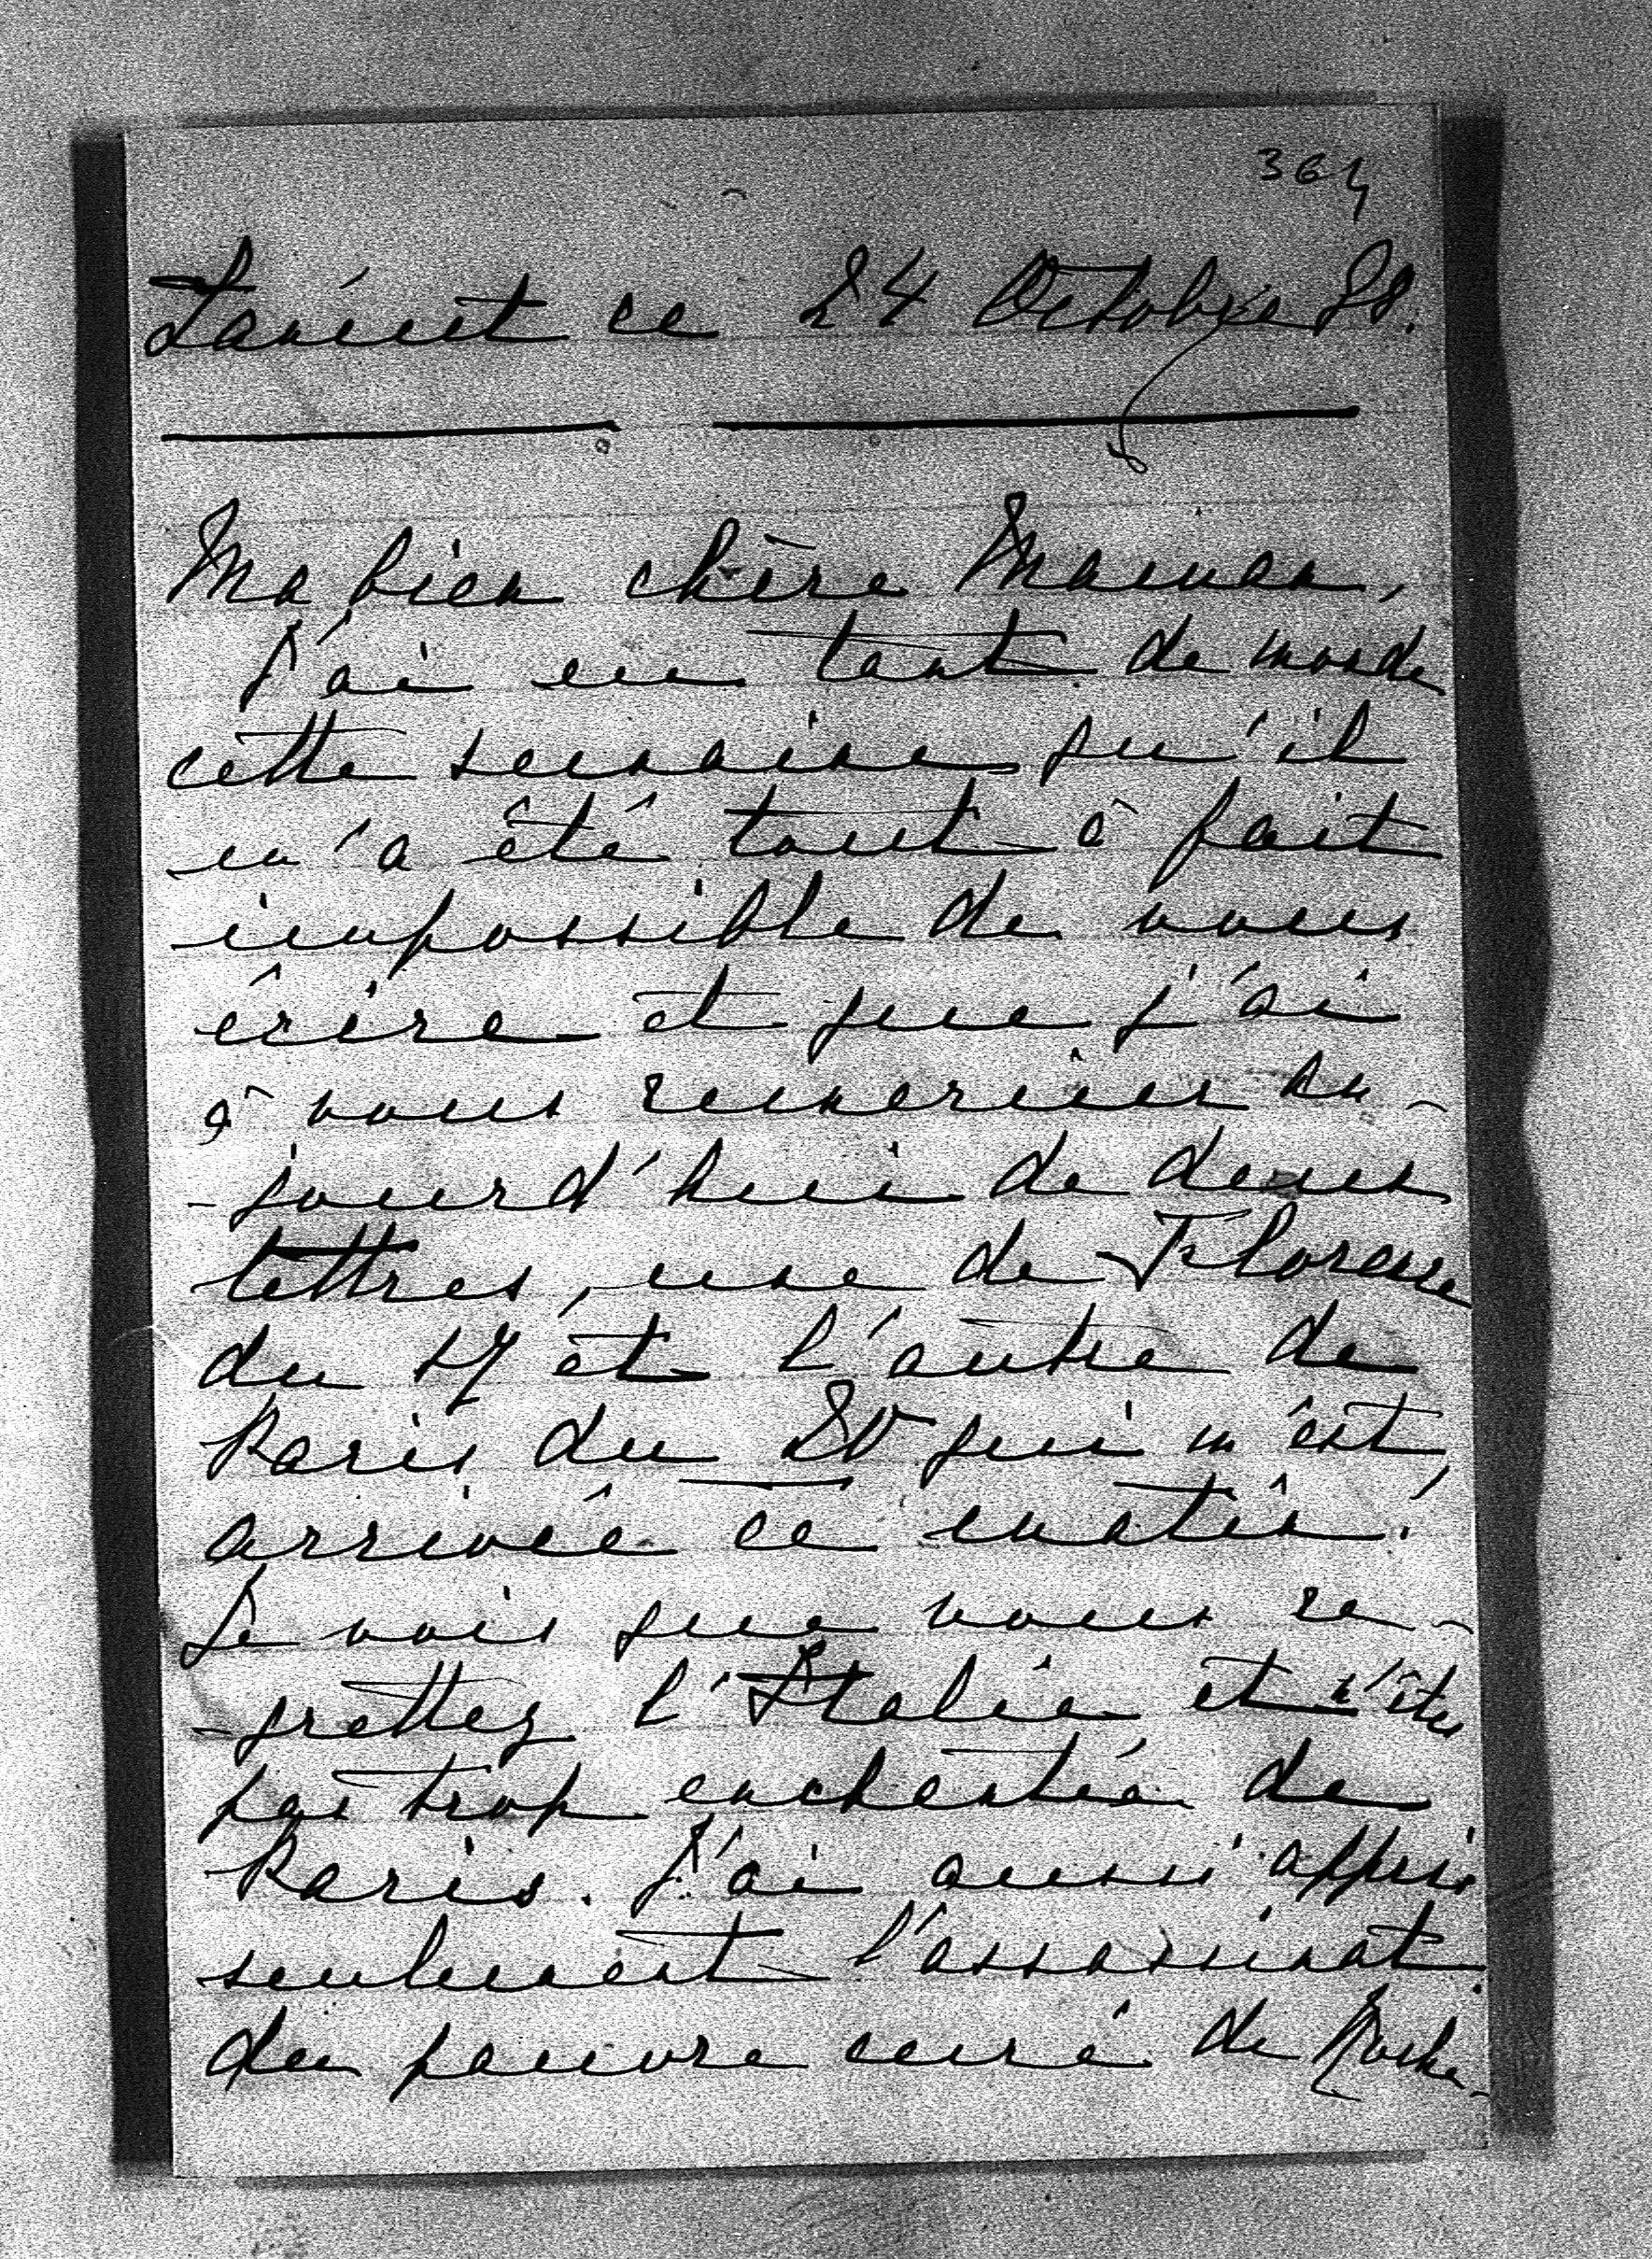 364
ce 24 Octobre 88.
Ma bien chère Maman,
J'ai eu tant de monde
cette semaine qu'il
m'a été tout à fait
impossible de vous
écrire et que j'ai
à vous remercier au-
-jourd'hui de deux
lettres, une de Florence
du 17 et l'autre de
Paris du 20 qui m'est
arrivée ce matin!
Je vois que vous re-
-grettez l'Italie et n'êtes
pas trop enchantée de
Paris. J'ai aussi appris
seulement l'assassinat
du pauvre curé de